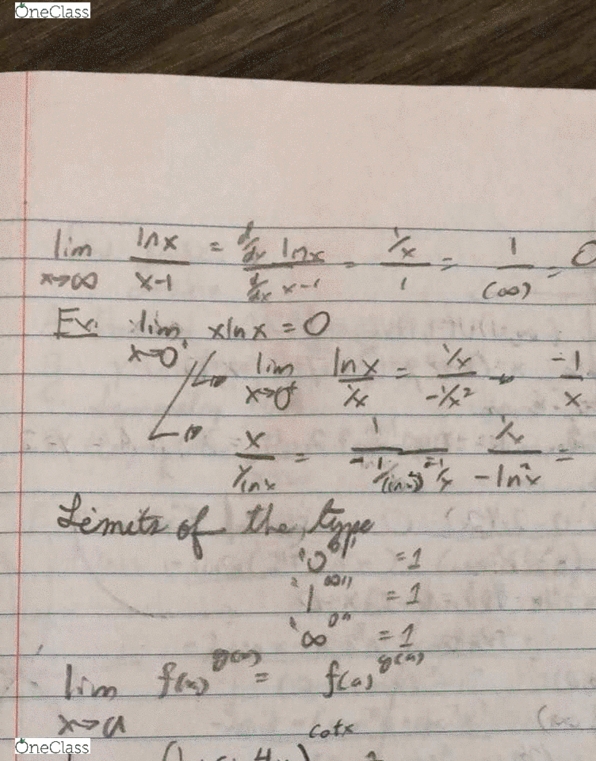 OneClass
lim x→∞ lnx / x-1 = d/dx lnx / d/dx x-1 = 1/x / 1 = 1 / (∞) = 0
Ex: lim x→0⁺ xlnx = 0
lim x→0⁺ lnx / 1/x = 1/x / -1/x² -1 / x
x / 1/lnx = 1 / = 1/x / -ln²x =
Limits of the type
"0⁰" = 1
"1^∞" = 1
"∞⁰" = 1
lim x→a f(x)^g(x) = f(a)^g(a)
cotx
OneClass